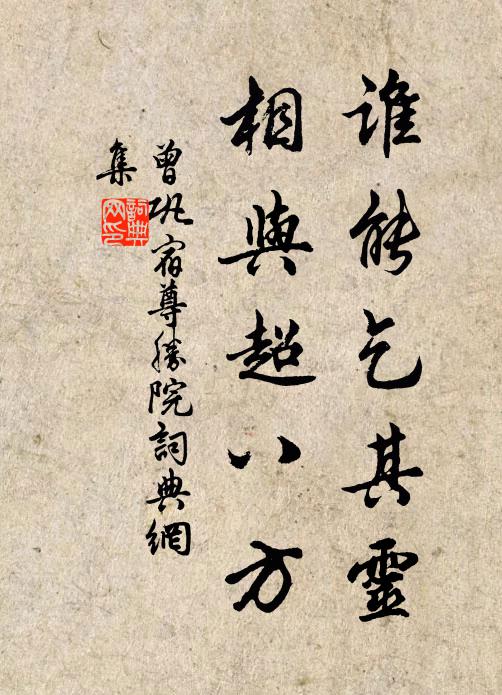 誰能乞其靈
相與超八方
曾鞏宿尊勝院詞典網
集
詞典網印